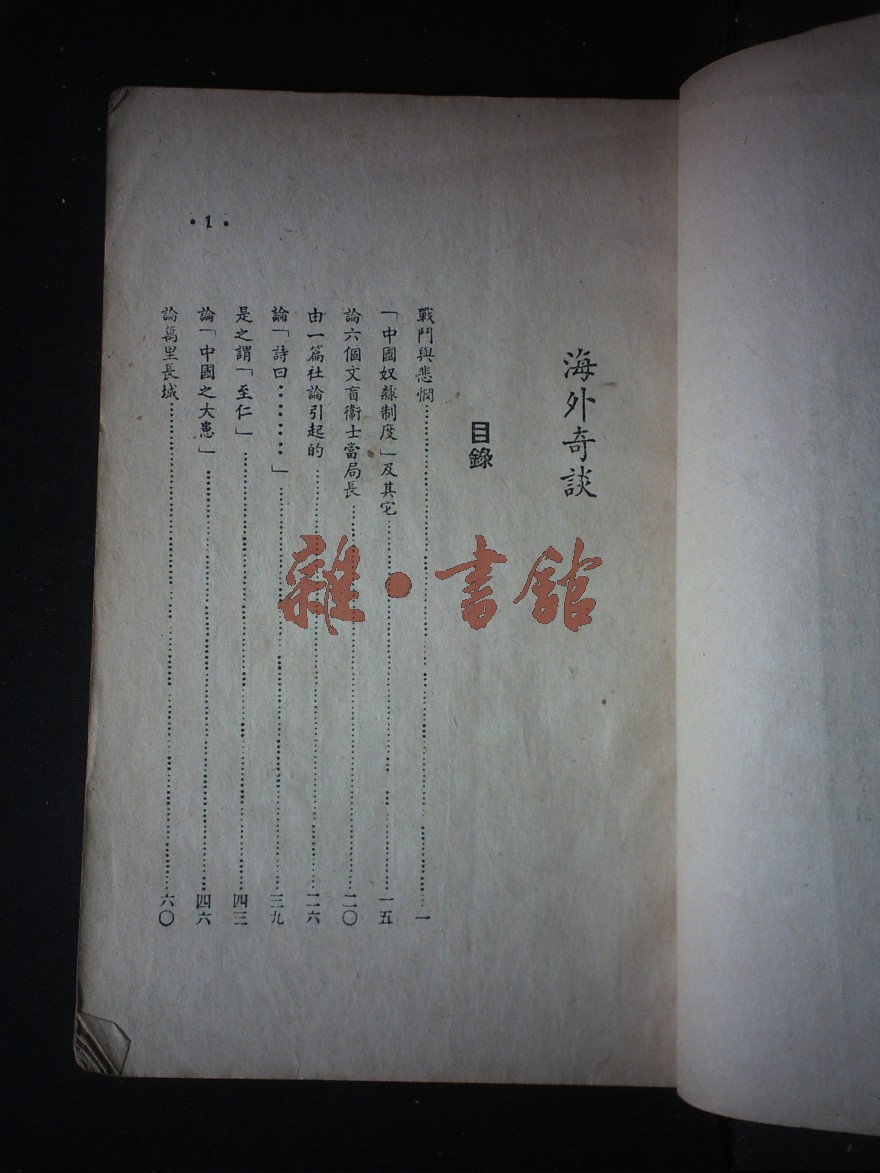 海外奇談
目錄
戰鬥與悲憫……一
「中國奴隸制度」及其它……一五
論六個文盲衞士當局長……二〇
由一篇社論引起的……二六
論「詩曰……」……三九
是之謂「至仁」……四三
論「中國之大患」……四六
論萬里長城……六〇
·1·
雜·書館